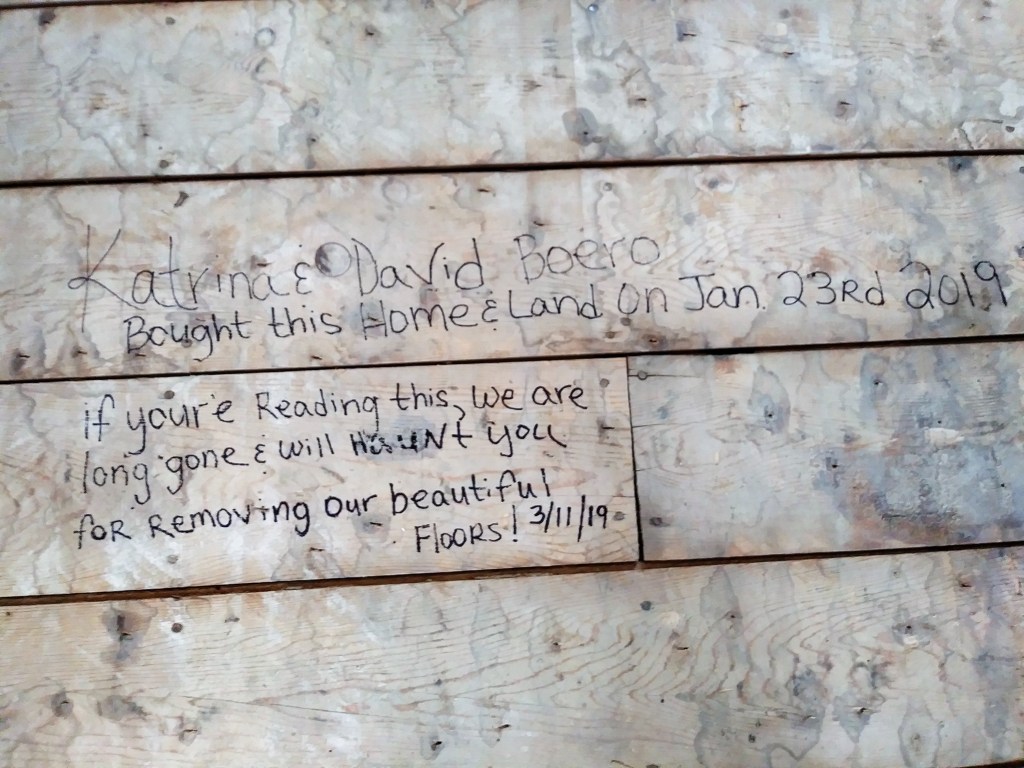 Katrina & David Boero
Bought this Home & Land on Jan. 23Rd 2019
if your'e Reading this, we are
long gone & will HauNt you
foR Removing our beautiful
FlooRs! 3/11/19